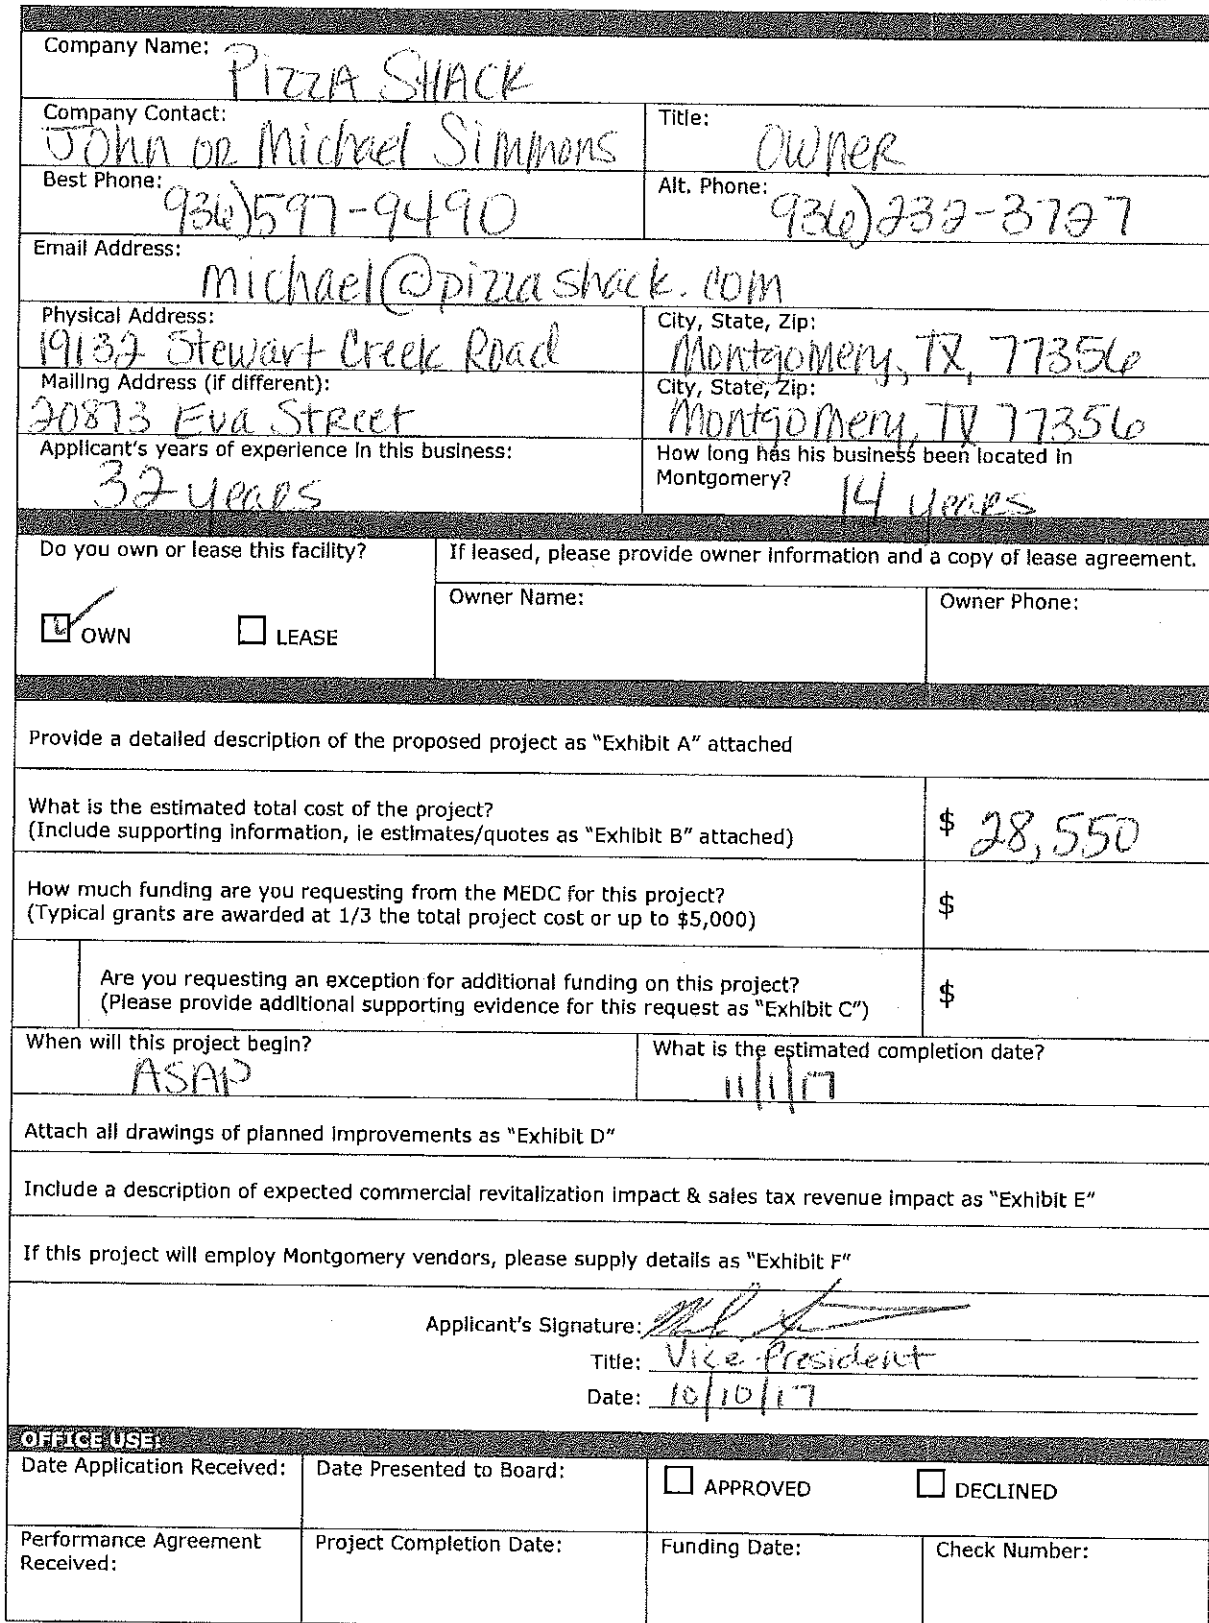 Company Name: PIZZA SHACK
Company Contact: John or Michael Simmons
Title: Owner
Best Phone: 936)597-9490
Alt. Phone: 936)232-3727
Email Address: michael@pizzashack.com
Physical Address: 19132 Stewart Creek Road
City, State, Zip: Montgomery, TX, 77356
Mailing Address (if different): 20873 Eva Street
City, State, Zip: Montgomery, TX 77356
Applicant's years of experience in this business: 32 years
How long has his business been located in
Montgomery? 14 years
Do you own or lease this facility?
If leased, please provide owner information and a copy of lease agreement.
OWN
LEASE
Owner Name:
Owner Phone:
Provide a detailed description of the proposed project as "Exhibit A" attached
What is the estimated total cost of the project?
(Include supporting information, ie estimates/quotes as "Exhibit B" attached)
$ 28,550
How much funding are you requesting from the MEDC for this project?
(Typical grants are awarded at 1/3 the total project cost or up to $5,000)
$
Are you requesting an exception for additional funding on this project?
(Please provide additional supporting evidence for this request as "Exhibit C")
$
When will this project begin? ASAP
What is the estimated completion date? 11/1/17
Attach all drawings of planned improvements as "Exhibit D"
Include a description of expected commercial revitalization impact & sales tax revenue impact as "Exhibit E"
If this project will employ Montgomery vendors, please supply details as "Exhibit F"
Applicant's Signature:
Title: Vice President
Date: 10/10/17
OFFICE USE:
Date Application Received:
Date Presented to Board:
APPROVED
DECLINED
Performance Agreement
Received:
Project Completion Date:
Funding Date:
Check Number: